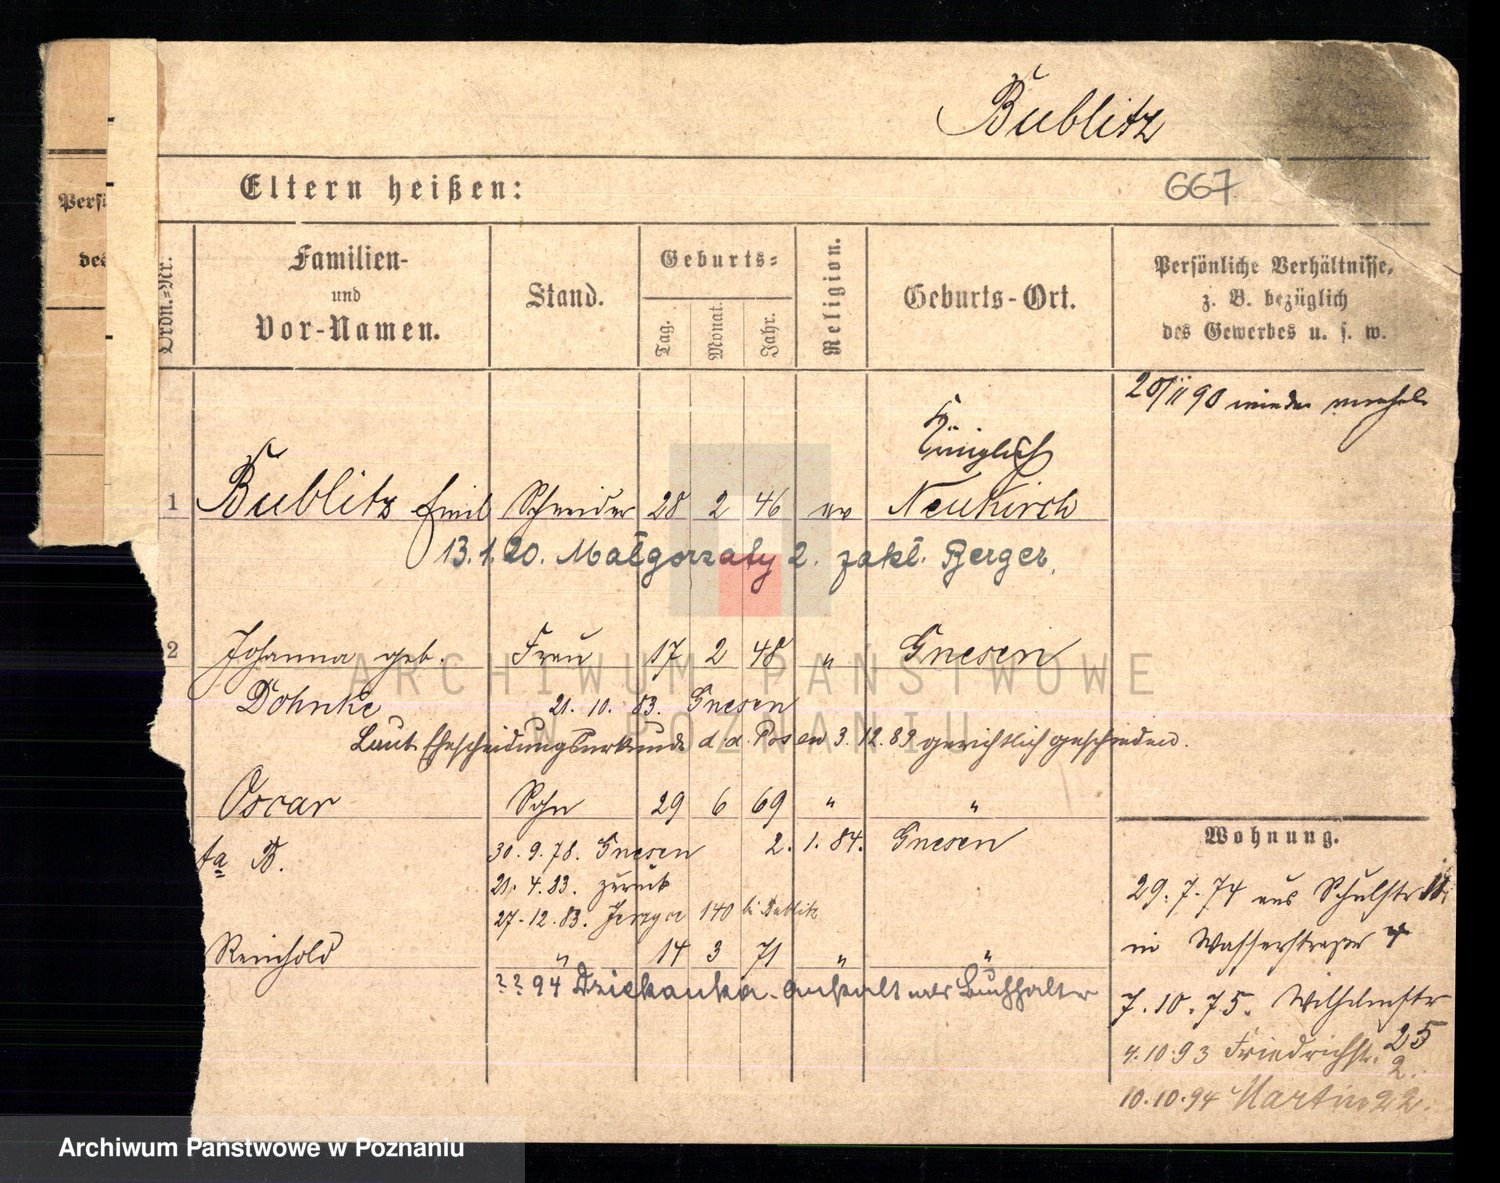 Bublitz
Eltern heißen:
667
Persö
des
Ordn.=Nr.
Familien-
und
Vor-Namen.
Stand.
Geburts=
Tag.
Monat.
Jahr.
Religion.
Geburts-Ort.
Persönliche Verhältnisse,
z. B. bezüglich
des Gewerbes u. s. w.
20/II 90 wieder verehel.
Königlich
1 Bublitz Emil Schneider 28 2 46 ev Neukirch
13.1.20. Małgorzaty 2. zakł. Berger.
2 Johanna geb. Frau 17 2 48 " Gnesen
Dohnke 21. 10. 83. Gnesen
Laut Ehescheidungsurkunde d. d. Posen 3. 12. 89 gerichtlich geschieden.
Oscar Sohn 29 6 69 " "
B. 30. 9. 78. Gnesen 2. 1. 84. Gnesen
21. 4. 83. zurück
27. 12. 83. 140 bei Bublitz
Reinhold " 14 3 71 " "
?? 94 Dziekanka-Anstalt als Buchhalter
Wohnung.
29. 7. 74 aus Schulstr
in Wasserstraße
7. 10. 75. Wilhelmstr
25
4. 10. 93 Friedrichstr. 2.
10. 10. 94 Martin 22.
ARCHIWUM PAŃSTWOWE
W POZNANIU
Archiwum Państwowe w Poznaniu